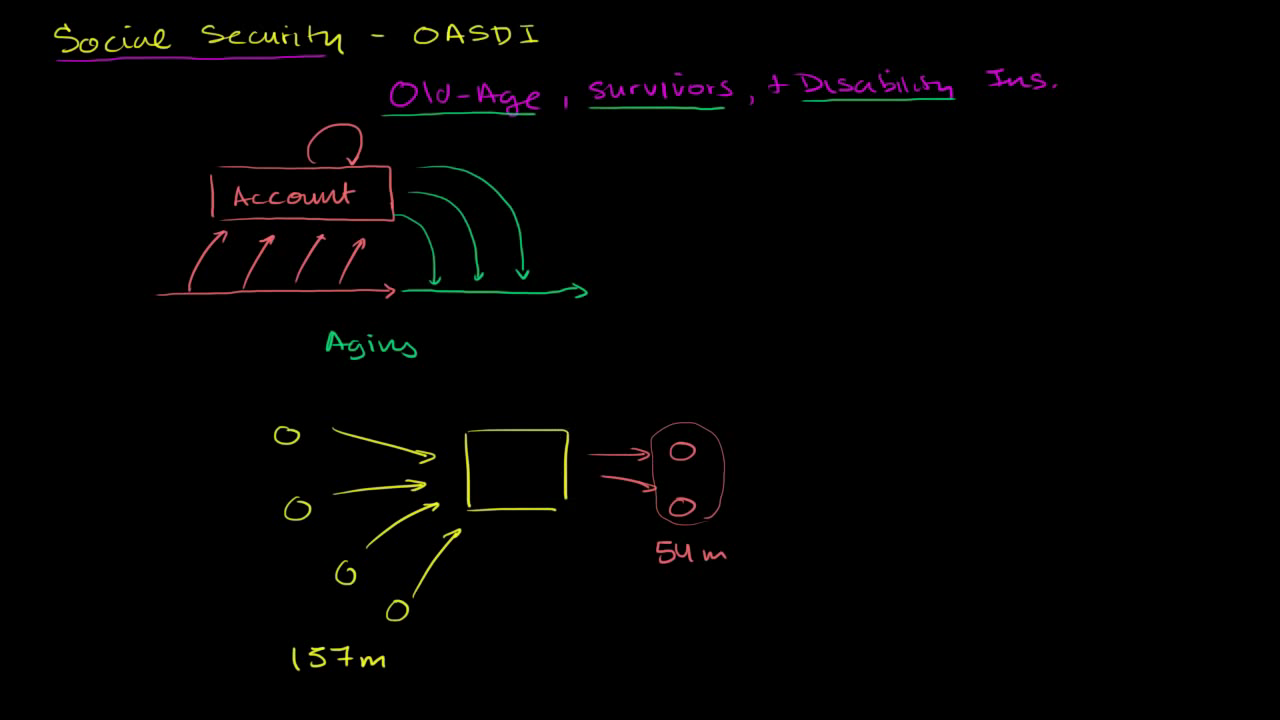 Social Security - OASDI
Old-Age, survivors, + Disability Ins.
Account
Aging
54m
157m